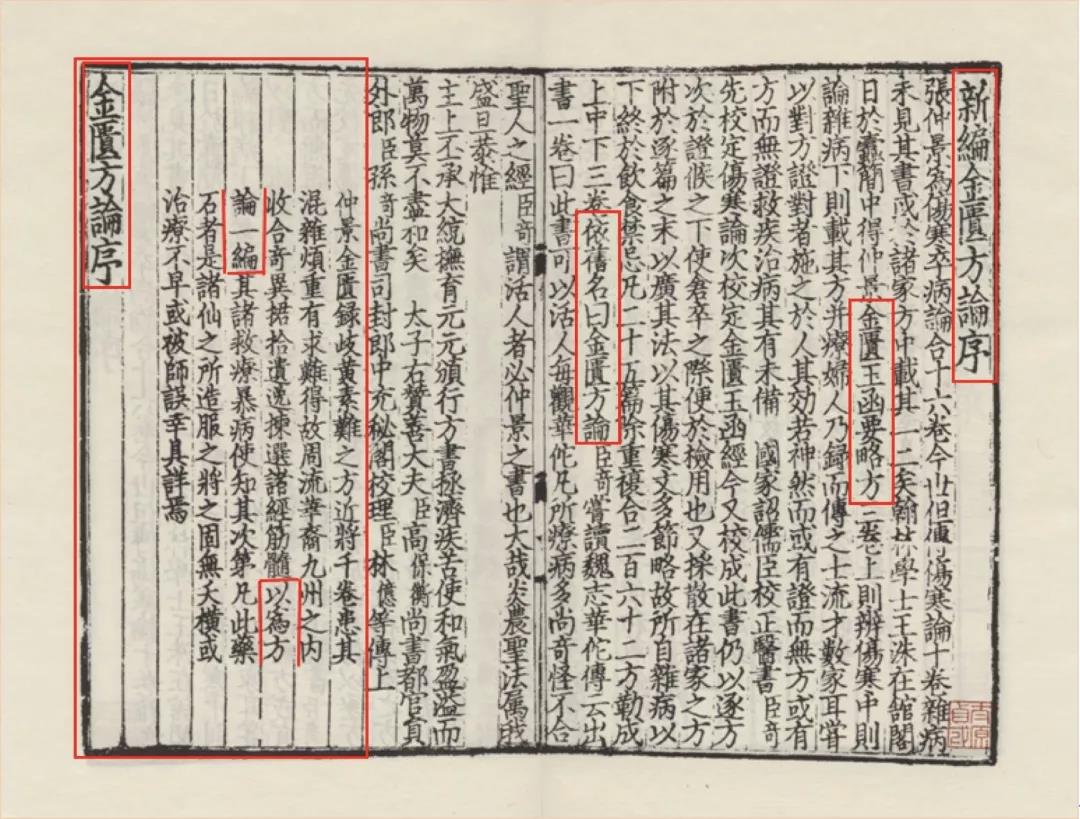 新編金匱方論序
張仲景為傷寒卒病論合十六卷今世但傳傷寒論十卷雜病
未見其書或於諸家方中載其一二矣翰林學士王洙在館閣
日於蠹簡中得仲景金匱玉函要略方三卷上則辨傷寒中則
論雜病下則載其方并療婦人乃錄而傳之士流才數家耳嘗
以對方證對者施之於人其効若神然而或有證而無方或有
方而無證救疾治病其有未備 國家詔儒臣校正醫書臣奇
先校定傷寒論次校定金匱玉函經今又校成此書仍以逐方
次於證候之下使倉卒之際便於檢用也又採散在諸家之方
附於逐篇之末以廣其法以其傷寒文多節略故所自雜病以
下終於飲食禁忌凡二十五篇除重複合二百六十二方勒成
上中下三卷依舊名曰金匱方論臣奇嘗讀魏志華佗傳云出
書一卷曰此書可以活人每觀華佗凡所療病多尚奇怪不合
聖人之經臣奇謂活人者必仲景之書也大哉炎農聖法屬我
盛旦恭惟
主上丕承大統撫育元元頒行方書拯濟疾苦使和氣盈溢而
萬物莫不盡和矣 太子右贊善大夫臣高保衡尚書都官員
外郎臣孫奇尚書司封郎中充秘閣校理臣林億等傳上
仲景金匱録岐黃素難之方近將千卷患其
混雜煩重有求難得故周流華裔九州之内
收合奇異捃拾遺逸揀選諸經筋髓以為方
論一編其諸救療暴病使知其次第凡此藥
石者是諸仙之所造服之將之固無夭横或
治療不早或被師誤幸具詳焉
金匱方論序